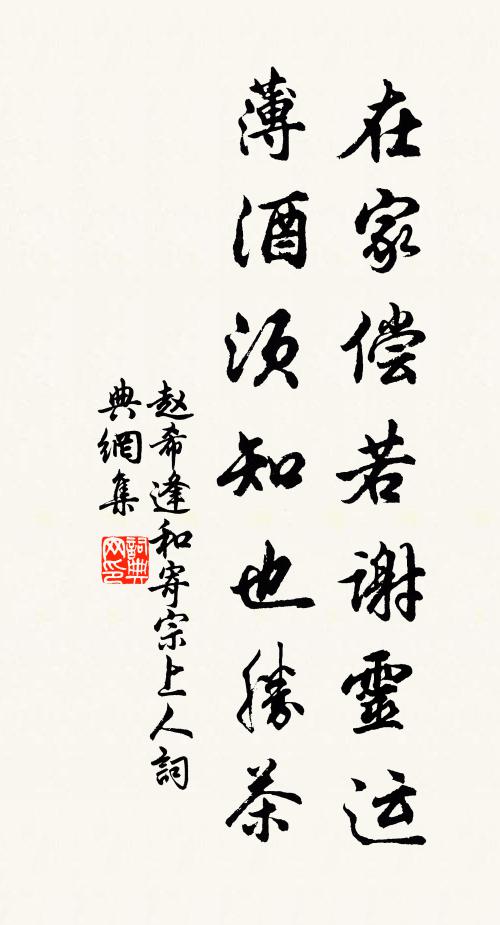 在家偿若谢靈运
薄酒须知也勝茶
赵希逢和寄宗上人詞
典網集
詞典网印